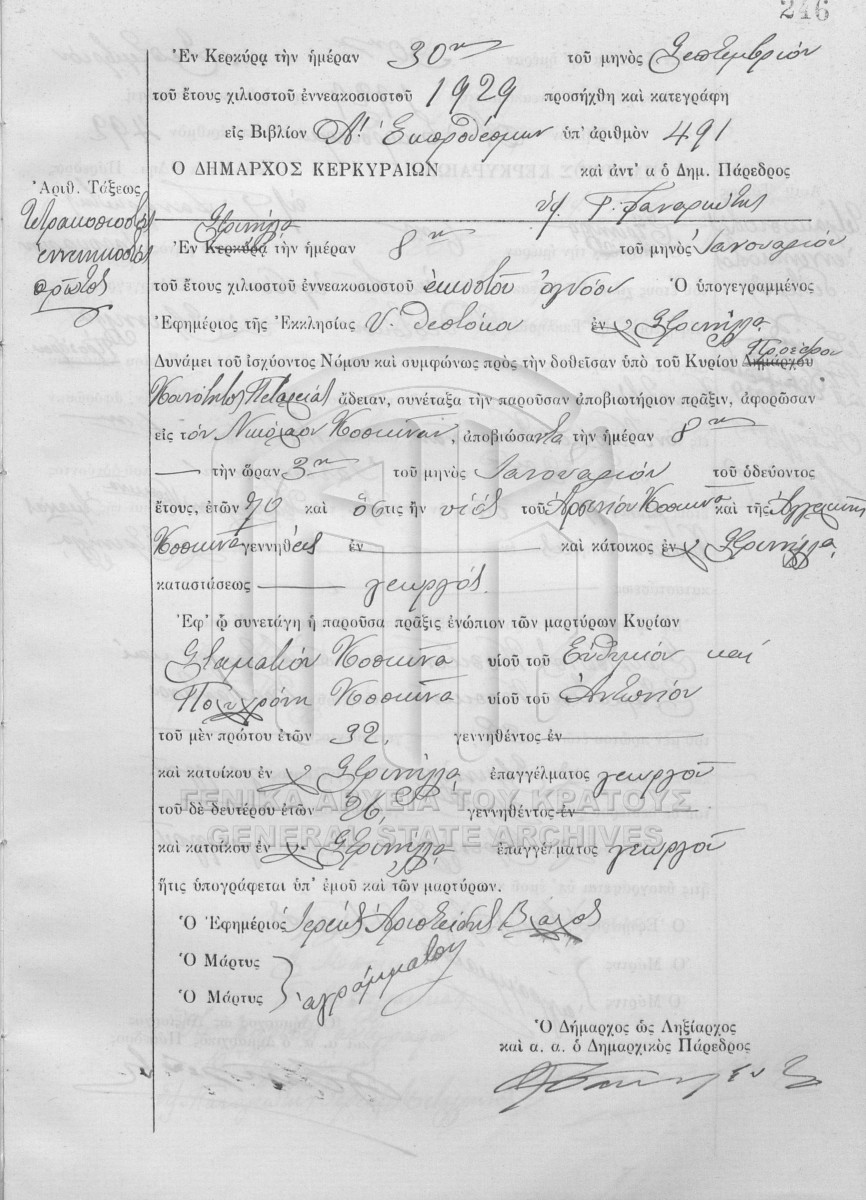 246
Ἐν Κερκύρᾳ τὴν ἡμέραν 30ην τοῦ μηνὸς Σεπτεμβρίου
τοῦ ἔτους χιλιοστοῦ ἐννεακοσιοστοῦ 1929 προσήχθη καὶ κατεγράφη
εἰς Βιβλίον Α! Ἐκπροθέσμων ὑπ' ἀριθμὸν 491
Ο ΔΗΜΑΡΧΟΣ ΚΕΡΚΥΡΑΙΩΝ καὶ ἀντ' α ὁ Δημ. Πάρεδρος
Ἀριθ. Τάξεως
Τετρακοσιοστὸς
ἐννενηκοστὸς
πρῶτος
Στρινύλα
Ἐν Κερκύρᾳ τὴν ἡμέραν 8ην τοῦ μηνὸς Ἰανουαρίου
τοῦ ἔτους χιλιοστοῦ ἐννεακοσιοστοῦ εἰκοστοῦ ὀγδόου Ὁ ὑπογεγραμμένος
Ἐφημέριος τῆς Ἐκκλησίας Υ. Θεοτόκου ἐν Στρινύλα
Δυνάμει τοῦ ἰσχύοντος Νόμου καὶ συμφώνως πρὸς τὴν δοθεῖσαν ὑπὸ τοῦ Κυρίου Δημάρχου Προέδρου
Κοινότητος Πεταλειᾶς ἄδειαν, συνέταξα τὴν παροῦσαν ἀποβιωτήριον πρᾶξιν, ἀφορῶσαν
εἰς τὸν Νικόλαον Κοσκινᾶν, ἀποβιώσαντα τὴν ἡμέραν 8ην
τὴν ὥραν 3ην τοῦ μηνὸς Ἰανουαρίου τοῦ ὁδεύοντος
ἔτους, ἐτῶν 70 καὶ ὅστις ἦν υἱὸς τοῦ Ἀρσενίου Κοσκινᾶ καὶ τῆς Ἀγγελικῆς
Κοσκινᾶ γεννηθεὶς ἐν καὶ κάτοικος ἐν Στρινύλα
καταστάσεως γεωργός.
Ἐφ' ᾧ συνετάγη ἡ παροῦσα πρᾶξις ἐνώπιον τῶν μαρτύρων Κυρίων
Σταματίου Κοσκινᾶ υἱοῦ τοῦ Εὐθυμίου καὶ
Πολυχρόνη Κοσκινᾶ υἱοῦ τοῦ Ἀντωνίου
τοῦ μὲν πρώτου ἐτῶν 32, γεννηθέντος ἐν
καὶ κατοίκου ἐν Στρινύλα ἐπαγγέλματος γεωργοῦ
τοῦ δὲ δευτέρου ἐτῶν 26, γεννηθέντος ἐν
καὶ κατοίκου ἐν Στρινύλα ἐπαγγέλματος γεωργοῦ
ἥτις ὑπογράφεται ὑπ' ἐμοῦ καὶ τῶν μαρτύρων.
Ὁ Ἐφημέριος Ἱερεὺς Ἀριστείδης Βλάχος
Ὁ Μάρτυς
Ὁ Μάρτυς ἀγράμματοι
Ὁ Δήμαρχος ὡς Ληξίαρχος
καὶ α. α. ὁ Δημαρχικὸς Πάρεδρος
ΓΕΝΙΚΑ ΑΡΧΕΙΑ ΤΟΥ ΚΡΑΤΟΥΣ
GENERAL STATE ARCHIVES